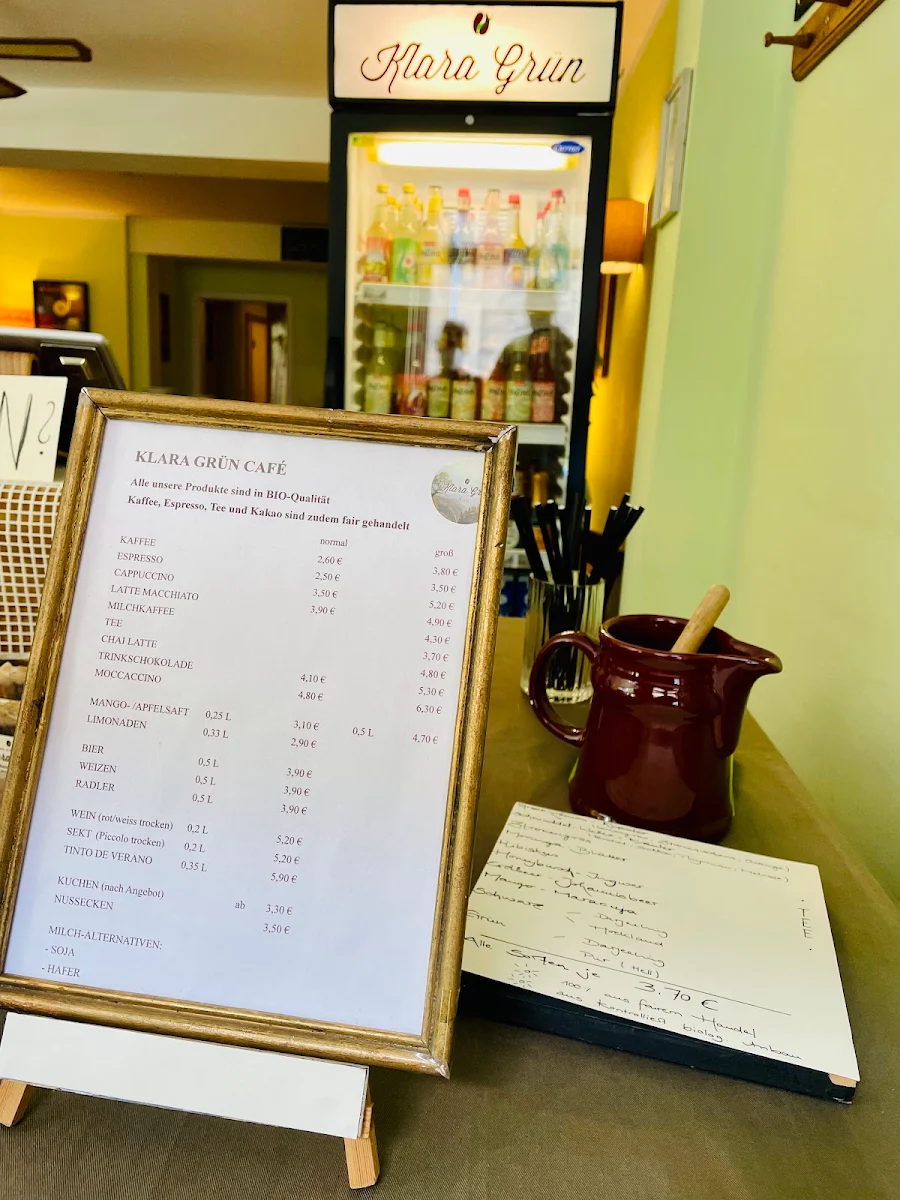 Klara Grün
KLARA GRÜN CAFÉ
Alle unsere Produkte sind in BIO-Qualität
Kaffee, Espresso, Tee und Kakao sind zudem fair gehandelt
normal groß
KAFFEE 2,60 € 3,80 €
ESPRESSO 2,50 € 3,50 €
CAPPUCCINO 3,50 € 5,20 €
LATTE MACCHIATO 3,90 € 4,90 €
MILCHKAFFEE 4,30 €
TEE 3,70 €
CHAI LATTE 4,80 €
TRINKSCHOKOLADE 4,10 € 5,30 €
MOCCACCINO 4,80 € 6,30 €
MANGO- /APFELSAFT 0,25 L 3,10 € 0,5 L 4,70 €
LIMONADEN 0,33 L 2,90 €
BIER 0,5 L 3,90 €
WEIZEN 0,5 L 3,90 €
RADLER 0,5 L 3,90 €
WEIN (rot/weiss trocken) 0,2 L 5,20 €
SEKT (Piccolo trocken) 0,2 L 5,20 €
TINTO DE VERANO 0,35 L 5,90 €
KUCHEN (nach Angebot) ab 3,30 €
NUSSECKEN 3,50 €
MILCH-ALTERNATIVEN:
- SOJA
- HAFER
· TEE ·
Zitronengras
Moringa Blätter
Hibiskus
Honeybush - Ingwer
Erdbeer - Johannisbeer
Mango - Maracuya
Schwarz - Darjeeling
- Hochland
Grün - Darjeeling
Pur (Hell)
Alle Sorten je 3,70 €
100% aus fairem Handel
aus kontrolliert biolog. Anbau